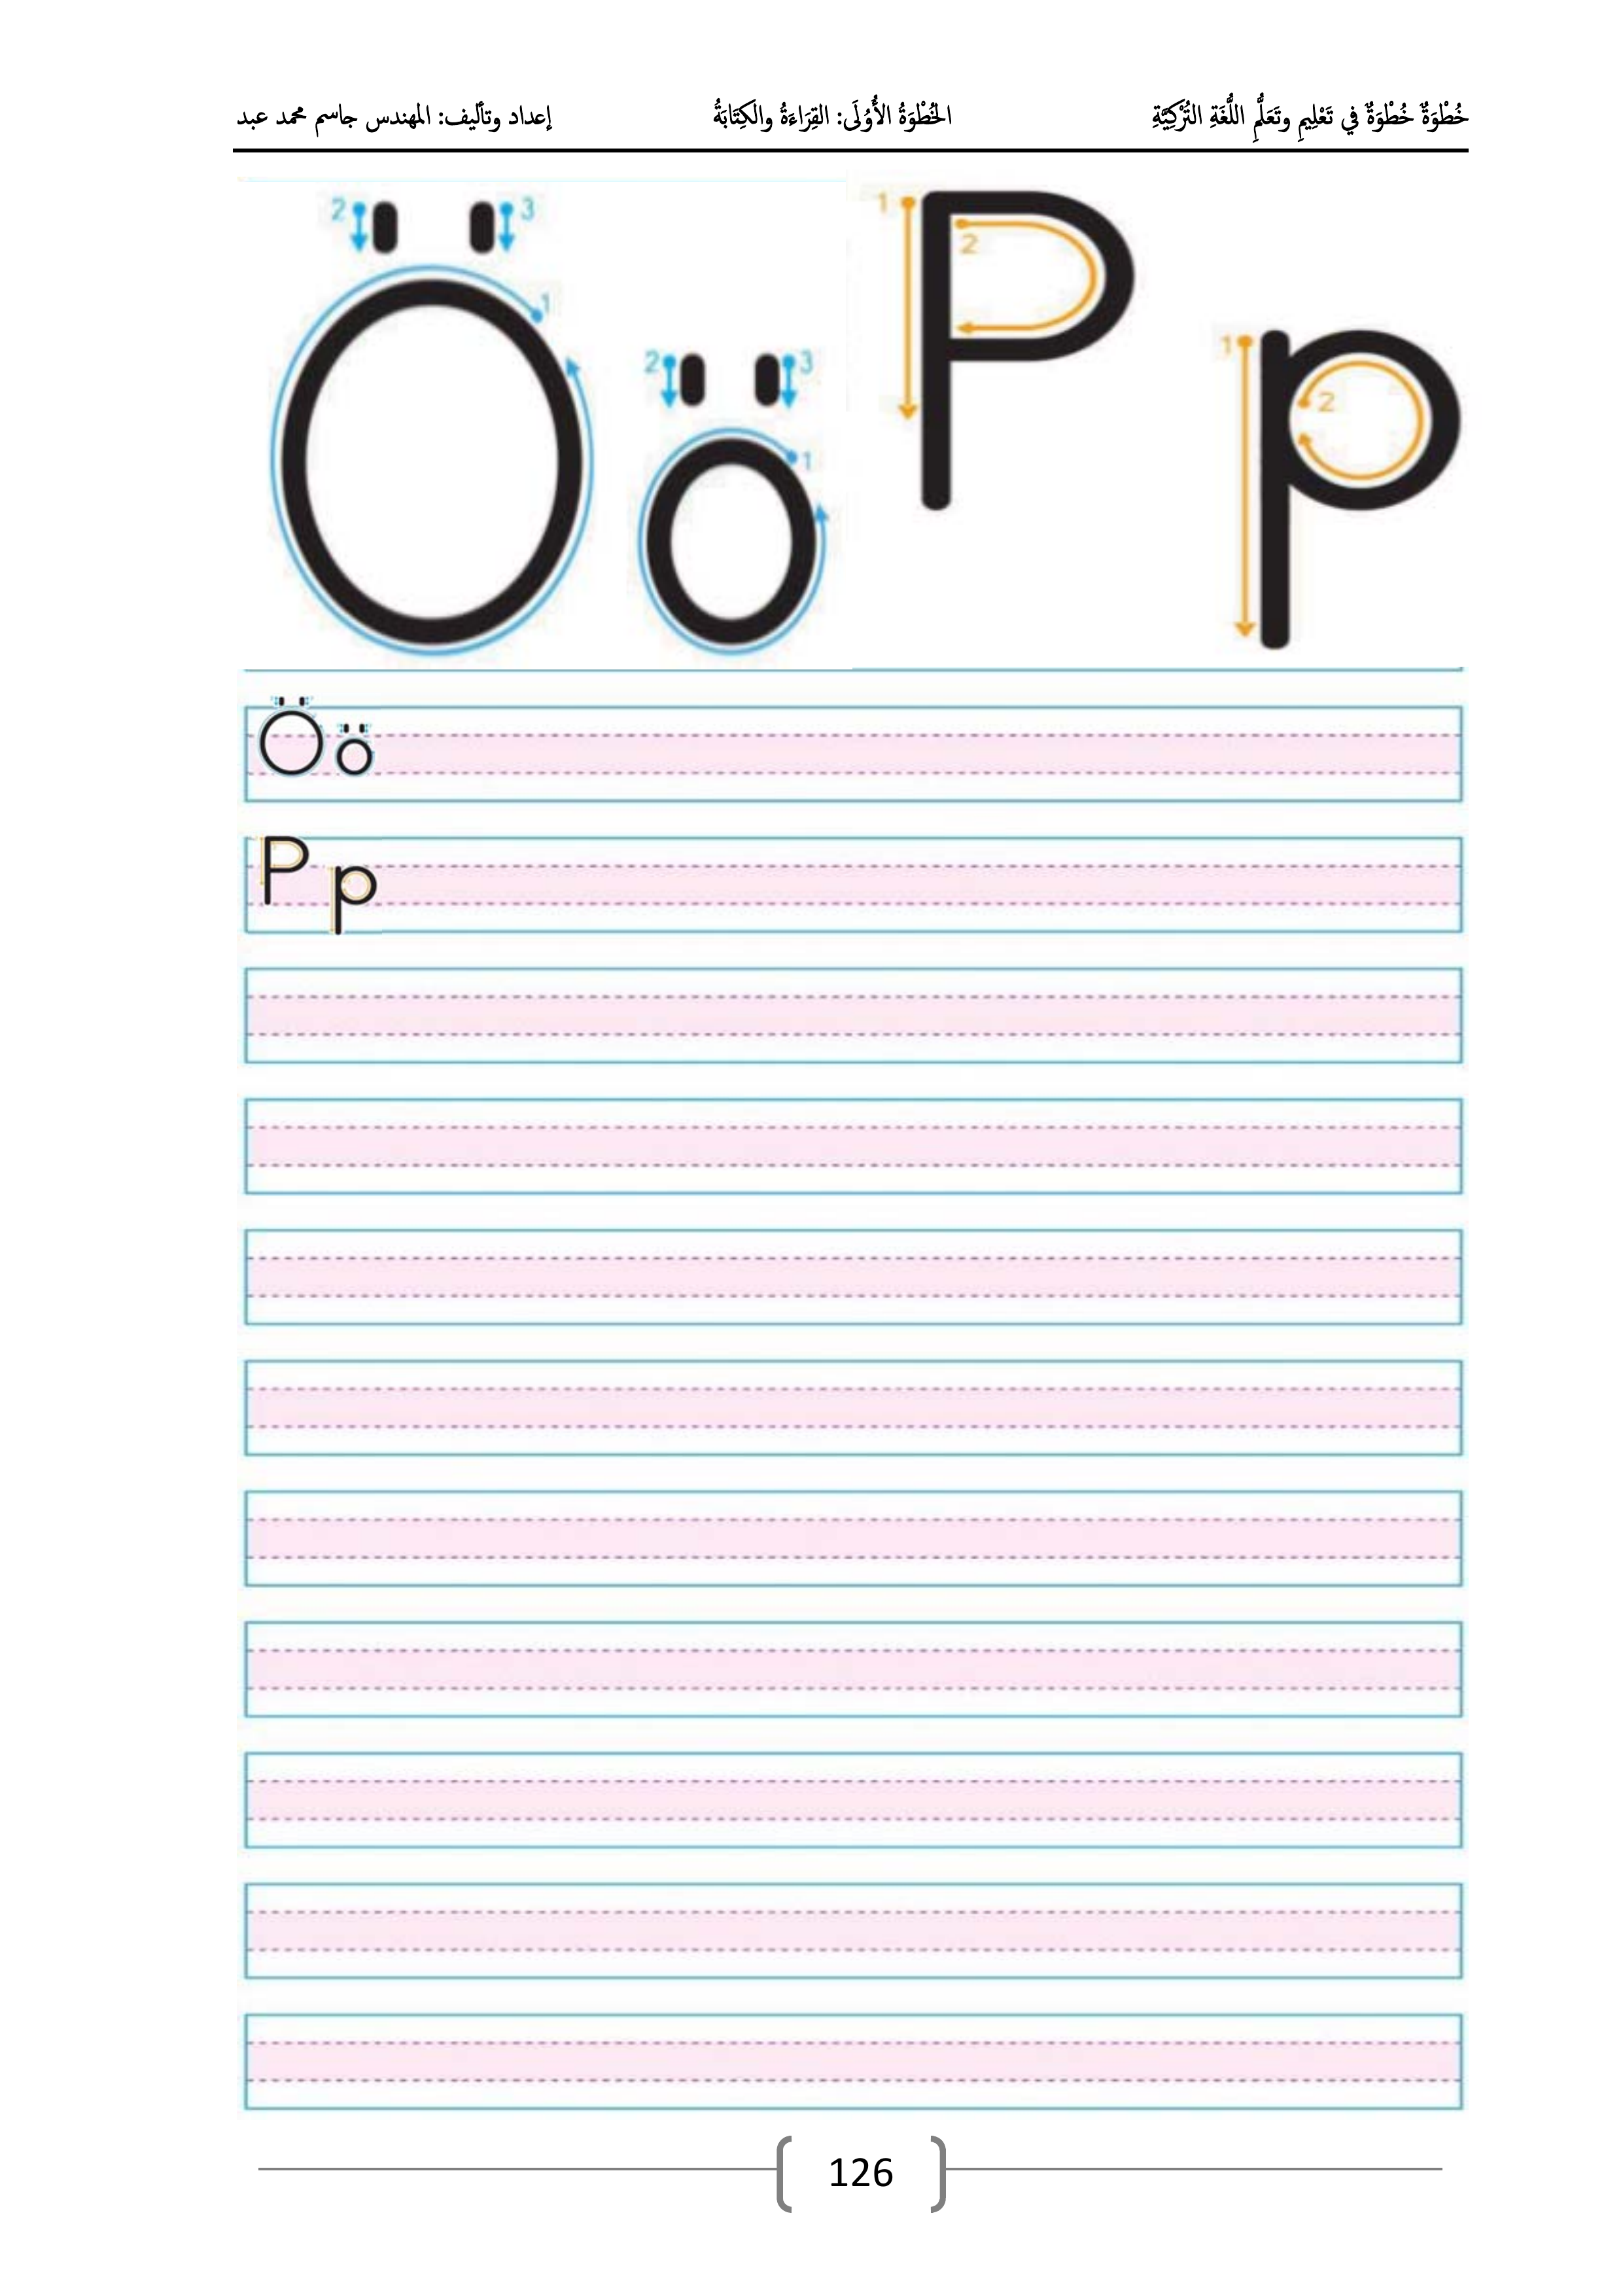 خُطْوَةٌ خُطْوَةٌ في تَعْلِيمِ وتَعَلُّمِ اللُّغَةِ التُرْكِيَّةِ الخُطْوَةُ الأُوْلَى: القِرَاءَةُ والكِتَابَةُ إعداد وتأليف: المهندس جاسم محمد عبد
2 3 1 2
1 2 3 1 2
1
Ö ö P p
Ö ö
P p
126